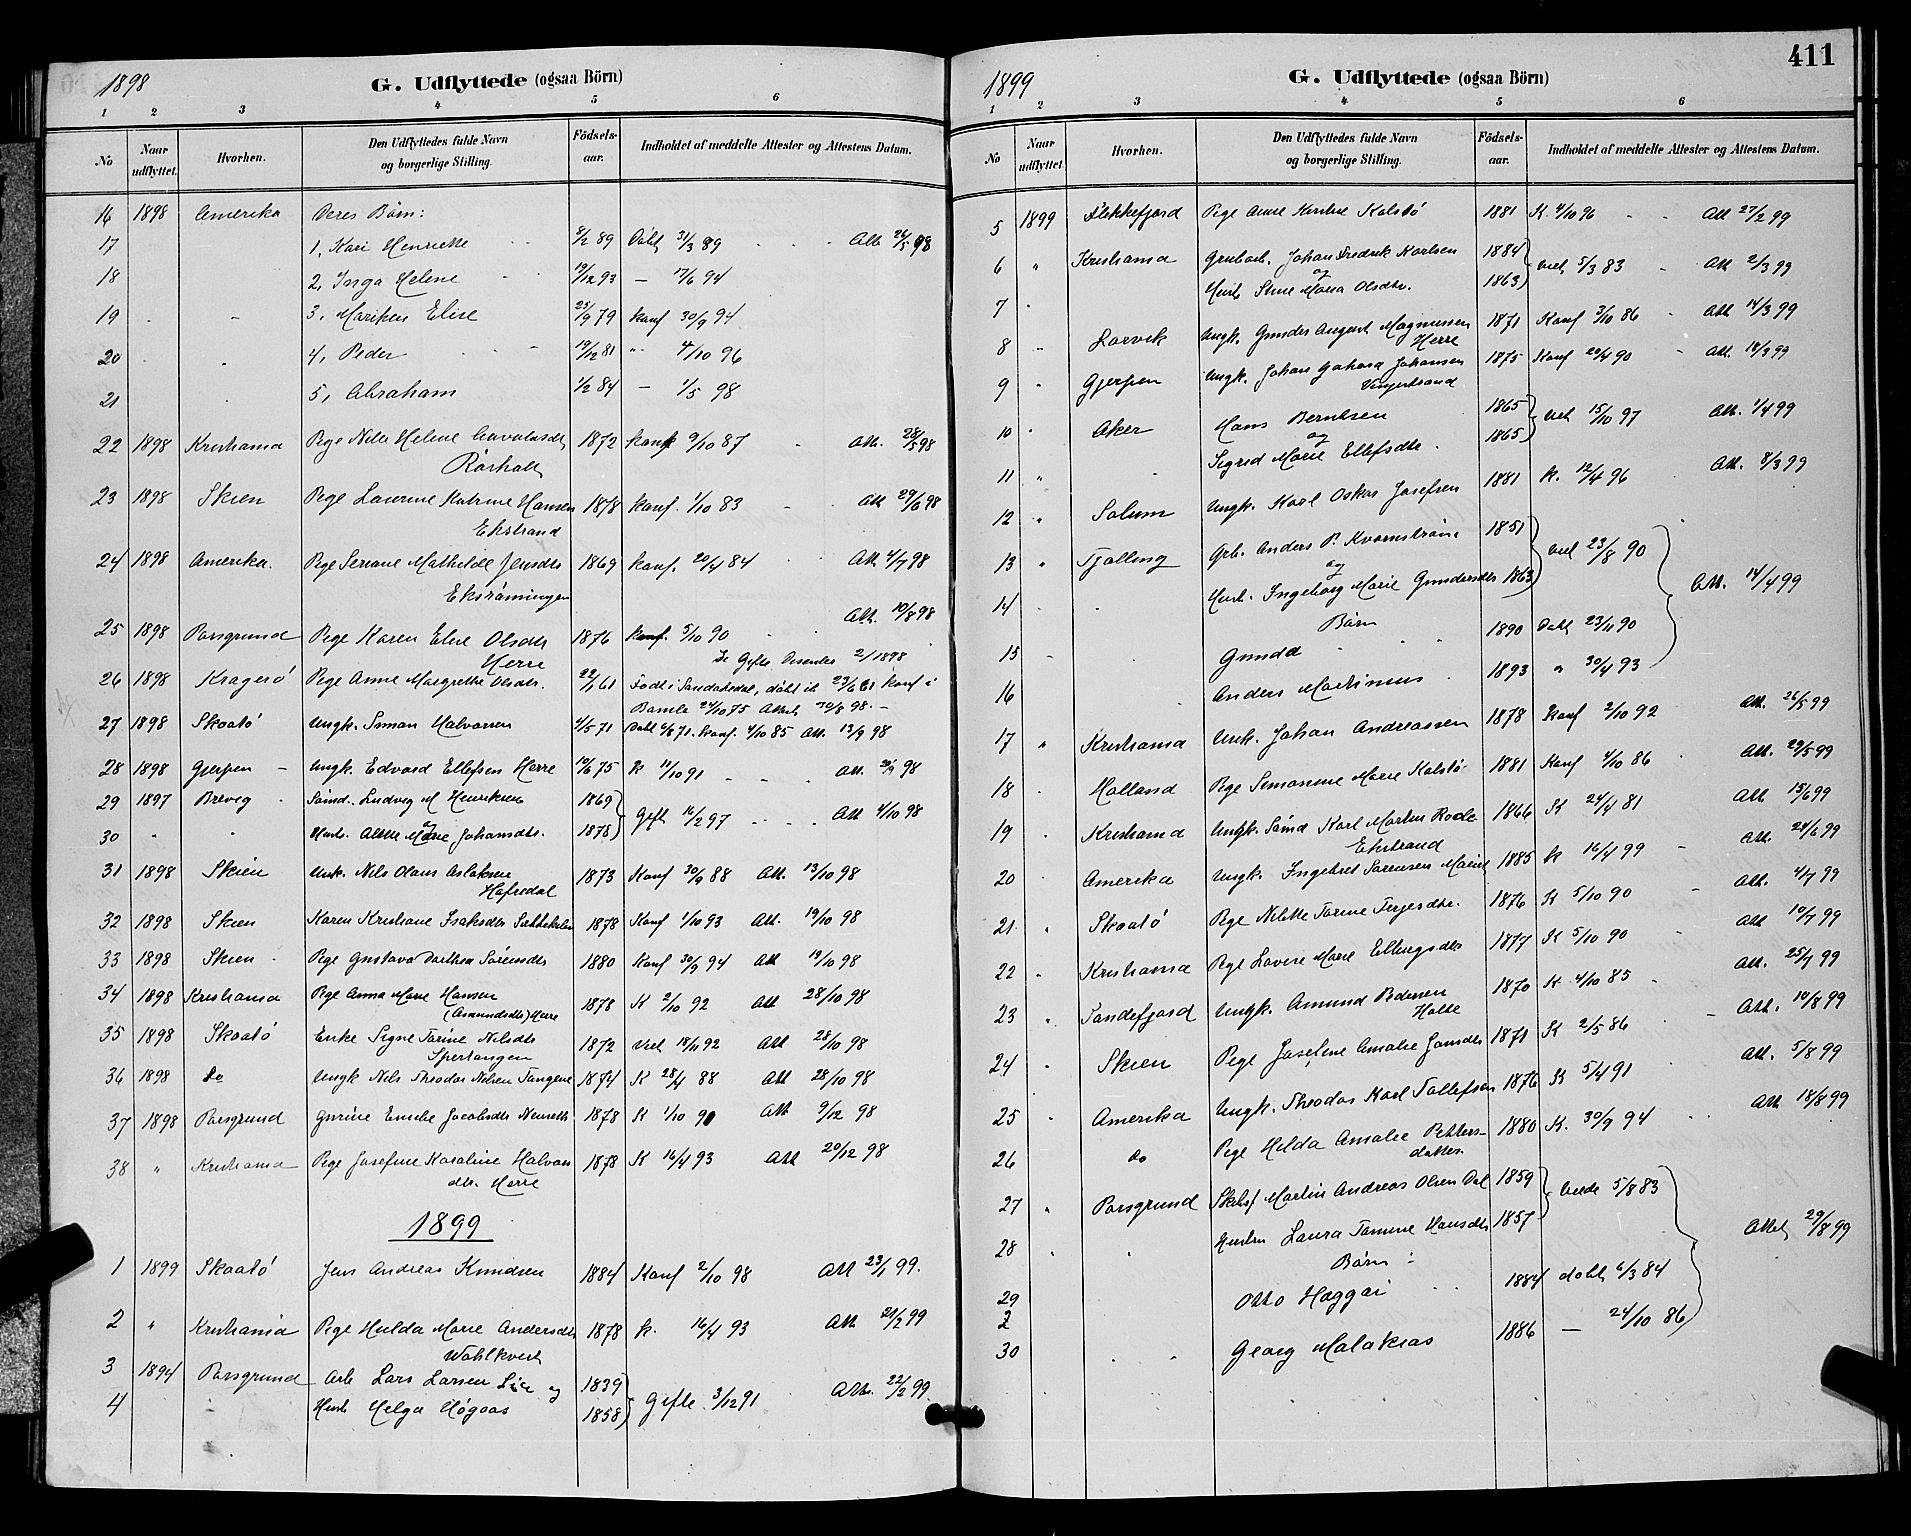 1898
G. Udflyttede (ogsaa Børn)
1 2 3 4 5 6
No | Naar udflyttet. | Hvorhen. | Den Udflyttedes fulde Navn og borgerlige Stilling. | Födsels-aar. | Indholdet af meddelte Attester og Attestens Datum.
16 1898 Amerika Deres Børn:
17 1, Kari Henriette 8/2 89 Døbt 31/3 89 Att. 24/5 98
18 2, Inga Helene 19/12 93 — 17/6 94
19 3, Mariken Elise 25/9 79 konf 30/9 94
20 4, Peder 19/12 81 " 4/10 96
21 5, Abraham 1/2 84 — 1/5 98
22 1898 Kristiania Pige Helene 1872 konf 9/10 87 Att. 28/5 98
Rörholt
23 1898 Skien Pige Laurine Katrine Hansen 1878 konf. 1/10 83 Att 29/6 98
Ekstrand
24 1898 Amerika. Pige Seriane Mathilde Jensdtr 1869 konf. 20/4 84 Att. 4/7 98
25 1898 Porsgrund Pige Karen Elise Olsdtr 1876 konf. 5/10 90 Att. 10/8 98
Herre Se Gifte Desember 2/1898
26 1898 Kragerö Pige Anne Margrethe Olsdtr. 22/1 61 Født i Sandøkedal, døbt it 23/6 61 konf i
Bamle 24/10 75 Attest 30/8 98. —
27 1898 Skaatö Ungk. Simon Halvorsen 4/5 71 Døbt 4/6 71. konf. 4/10 85 Att. 13/9 98
28 1898 Gjerpen — Ungk. Edvard Ellefsen Herre 10/6 75 K 11/10 91 Att. 98
29 1897 Brevig Sömd. Ludvig M Henriksen 1869
og Gift 16/2 97 Att 4/10 98
30 " " Hust. Marie Johansdtr. 1878
31 1898 Skien Unk. Nils Olaus Aslaksen 1873 Konf 30/9 88 Att. 13/10 98
Hafredal
32 1898 Skien Karen Kristiane Isaksdtr 1878 Konf 1/10 93 Att. 19/10 98
33 1898 Skien Pige Gustava Dorthea Sörensdtr 1880 Konf 30/9 94 Att 19/10 98
34 1898 Kristiania Pige Anna Marie Hansen 1878 K 2/10 92 Att 28/10 98
(Amundsdtr) Herre
35 1898 Skaatö Enke Signe Torine Nilsdtr 1872 Viet 18/11 92 Att 28/10 98
36 1898 do Ungk Nils Theodor Nilsen Tangene 1874 K 28/4 88 Att 28/10 98
37 1898 Porsgrund Gurine Emilie Jacobsdtr 1878 K 1/10 91 Att 9/12 98
38 " Kristiania Pige Josefine Karoline Halvors 1878 K 16/4 93 Att 20/12 98
dtr. Herre
1899
1 1899 Skaatö Jens Andreas Knudsen 1884 Konf 2/10 98 Att 23/1 99.
2 " Kristiania Pige Hulda Marie Andersdtr 1878 K. 16/4 93 Att. 21/2 99
Wahlkvist
3 1894 Porsgrund Arb Lars Larsen Lie og 1839
Gifte 3/12 91 Att. 22/2 99.
4 Hust Helga Högaas 1858
411
1899
G. Udflyttede (ogsaa Börn)
1 2 3 4 5 6
No | Naar udflyttet. | Hvorhen. | Den Udflyttedes fulde Navn og borgerlige Stilling. | Födsels-aar. | Indholdet af meddelte Attester og Attestens Datum.
5 1899 Flekkefjord Pige Anne Kirstine Kalstö 1881 K. 4/10 96 Att 27/2 99
6 " Kristiania Grubarb. Johan Fredrik Karlsen 1884
og viet 5/3 83 Att 2/3 99
7 " Hust Stine Maria Olsdtr. 1863
8 " Larvik Ungk. Gunder August Magnussen 1871 Konf 3/10 86 Att 14/3 99
Herre
9 " Gjerpen Ungk. Johan Johansen 1875 Konf 20/4 90 Att. 18/3 99
10 " Aker Hans Berntsen 1865
og viet 15/10 97 Att. 1/4 99
11 " Sigrid Marie Ellefsdtr. 1865
12 " Solum Ungk. Karl Oskar Josefsen 1881 K. 12/4 96 Att. 8/3 99
13 " Tjølling Grb. Anders P. Kvarnström 1851
og viet 23/8 90
14 " Hust. Ingeborg Marie Gundersdtr 1863 Att. 14/4 99
Børn
15 Gunda 1890 Døbt 23/11 90
16 Anders Martinius 1893 " 30/4 93
17 " Kristiania Unk. Johan Andreassen 1878 Konf 2/10 92 Att. 26/5 99
18 Holland Pige Simonine Marie Kalstö 1881 Konf 4/10 86 Att. 29/5 99
19 Kristiania Ungk. Sömd Karl Martin Rode 1866 K 24/4 81 Att 15/6 99
Ekstrand
20 Amerika Ungk. Ingebret Sörensen 1885 K 16/4 99 Att. 28/6 99
21 " Skaatö Pige Nilette Torine Terjesdtr. 1876 K 5/10 90 Att. 4/7 99
22 " Kristiania Pige Lovise Marie 1877 K 5/10 90 Att 10/7 99
23 " Sandefjord Ungk. Amund Pedersen 1870 K 4/10 85 Att. 25/7 99
Holte
24 " Skien Pige Josefine Amalie Jonsdtr 1871 K 2/5 86 Att. 10/8 99
25 " Amerika Ungk. Theodor Karl Tollefsen 1876 K 5/4 91 Att. 5/8 99
26 do Pige Hilda Amalie Petters- 1880 K. 30/9 94 Att 18/8 99
datter
27 " Porsgrund Martin Andreas Olsen Dal 1859
viede 5/8 83
28 " " Hustru Laura Tomine Hansdtr 1857 Attest 29/8 99
Børn :
29 Otto Haggai 1884 døbt 6/3 84
2
30 " " Georg Malakias 1886 — 24/10 86